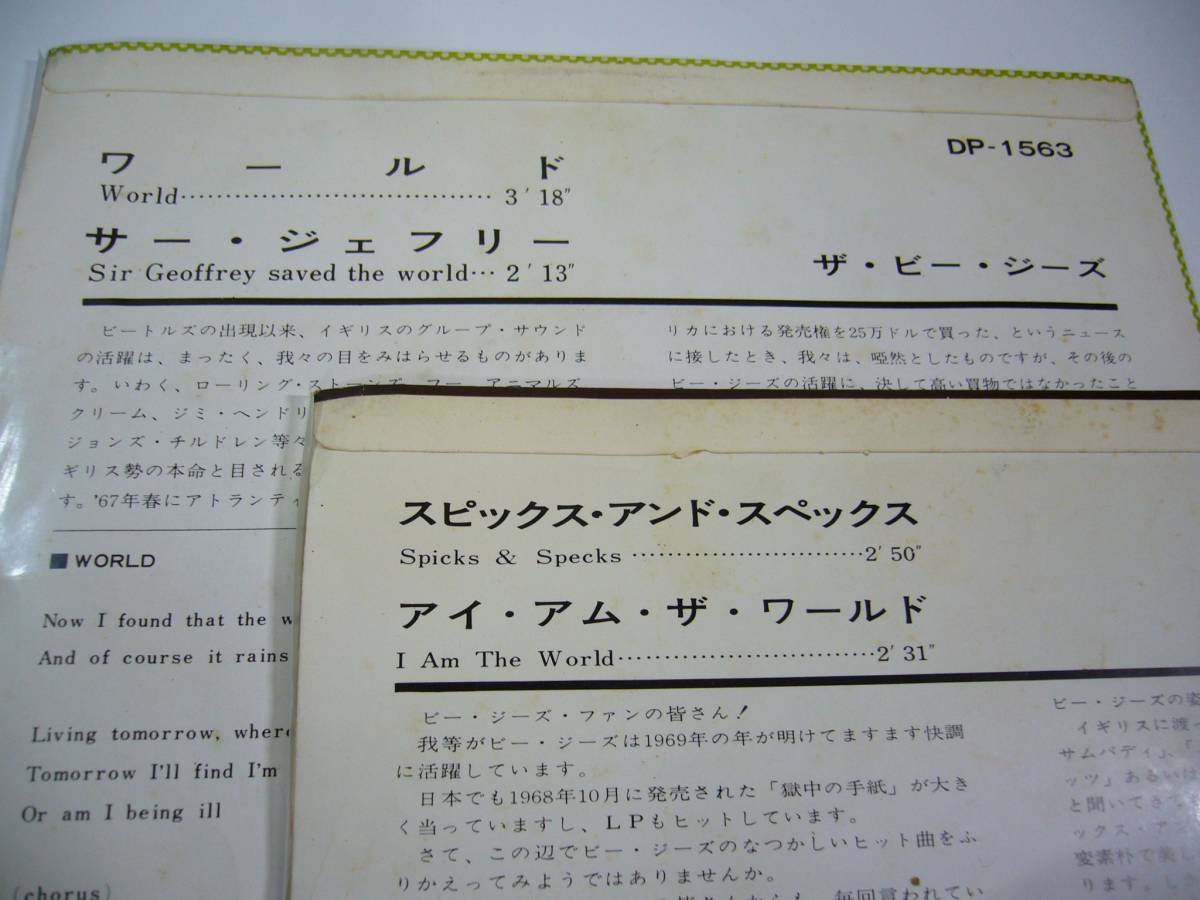 ワールド
World 3'18"
サー・ジェフリー
Sir Geoffrey saved the world… 2'13"
DP-1563
ザ・ビー・ジーズ
ビートルズの出現以来、イギリスのグループ・サウンド
の活躍は、まったく、我々の目をみはらせるものがありま
す。いわく、ローリング・ストーンズ、フー、アニマルズ
クリーム、ジミ・ヘンドリ
ジョンズ・チルドレン等々
ギリス勢の本命と目される
す。'67年春にアトランティ
リカにおける発売権を25万ドルで買った、というニュース
に接したとき、我々は、啞然としたものですが、その後の
ビー・ジーズの活躍に、決して高い買物ではなかったこと
■ WORLD
Now I found that the
And of course it rains
Living tomorrow, where
Tomorrow I'll find I'm
Or am I being ill
(chorus)
スピックス・アンド・スペックス
Spicks & Specks 2'50"
アイ・アム・ザ・ワールド
I Am The World 2'31"
ビー・ジーズ・ファンの皆さん！
我等がビー・ジーズは1969年の年が明けてますます快調
に活躍しています。
日本でも1968年10月に発売された「獄中の手紙」が大き
く当っていますし、LPもヒットしています。
さて、この辺でビー・ジーズのなつかしいヒット曲をふ
りかえってみようではありませんか。
皆さんからも、毎回言われてい
ビー・ジーズの姿
イギリスに渡
サムバディ」、「
ッツ」あるいは
と聞いてきて
ックス・アン
変素朴で美し
ります。しさ